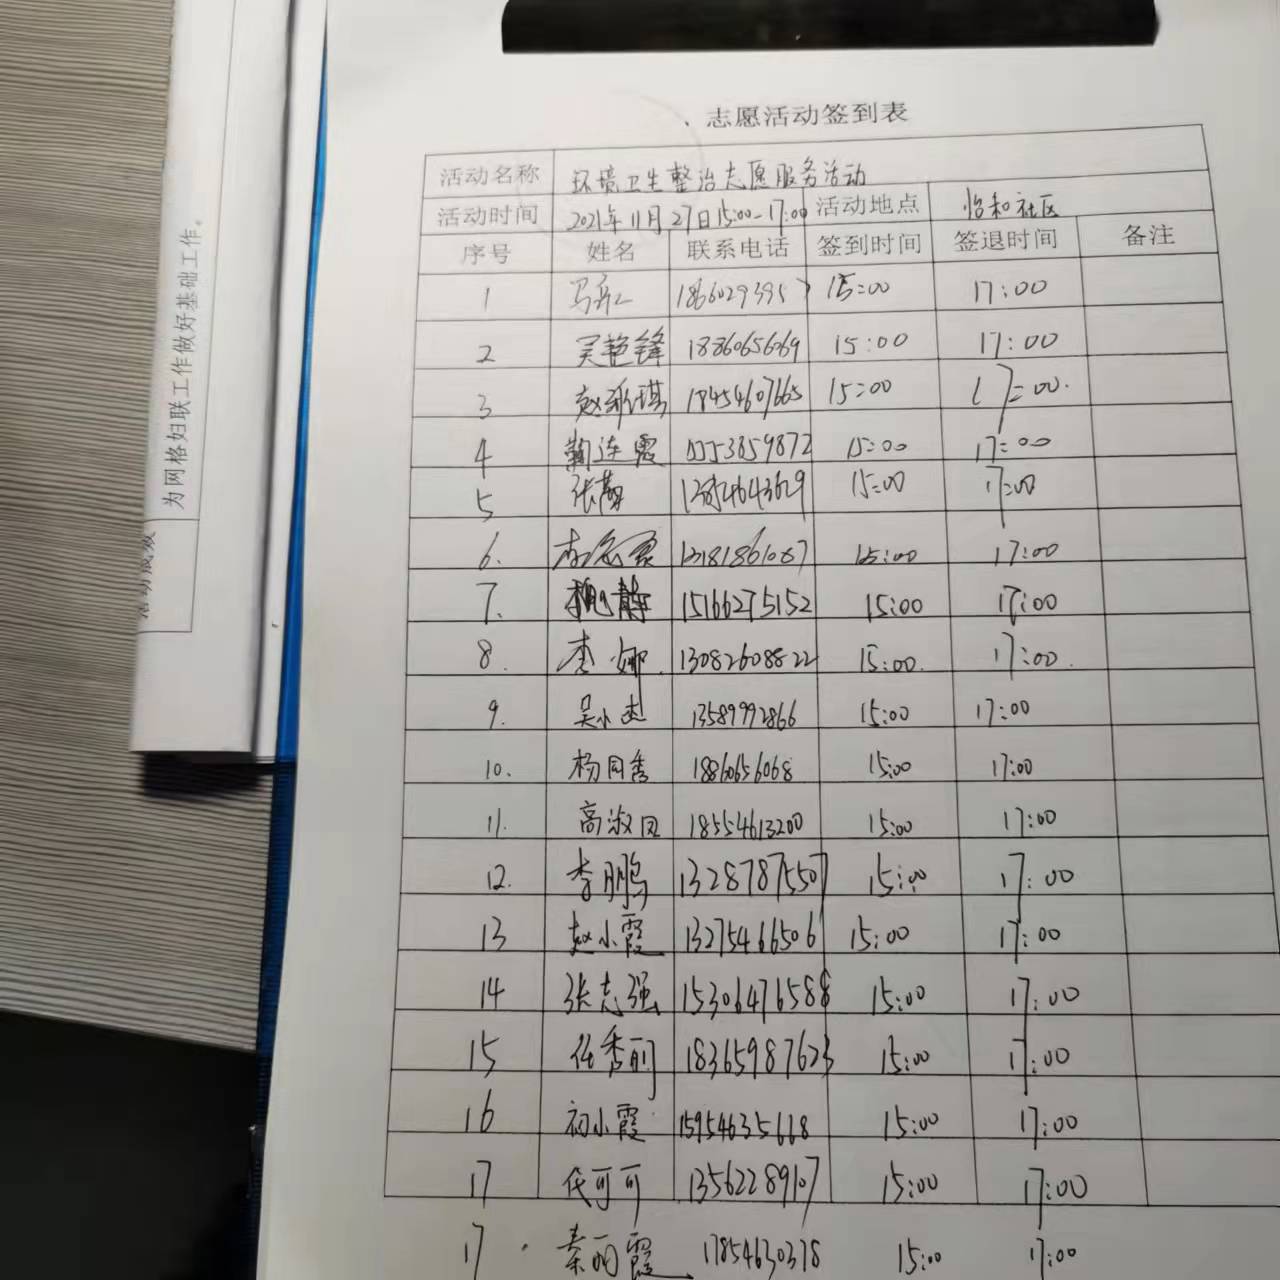 为网格妇联工作做好基础工作。
志愿活动签到表
活动名称 环境卫生整治志愿服务活动
活动时间 2021年11月27日15:00-17:00 活动地点 怡和社区
序号 姓名 联系电话 签到时间 签退时间 备注
1 15:00 17:00
2 吴艳锋 18860656069 15:00 17:00
3 18454607665 15:00 17:00.
4 鞠连霞 15:00 17:00
5 15:00 17:00
6. 13181861087 15:00 17:00
7. 15166275152 15:00 17:00
8. 李娜. 13082608822 15:00. 17:00.
9. 吴小杰 13589992866 15:00 17:00
10. 杨同秀 18860656068 15:00 17:00
11. 高淑凤 18554613200 15:00 17:00
12. 李鹏 13287875507 15:00 17:00
13 赵小霞 13275466506 15:00 17:00
14 张志强 15306476588 15:00 17:00
15 任秀丽 18365987623 15:00 17:00
16 初小霞 15954635668 15:00 17:00
17 代可可 13562289107 15:00 17:00
17. 秦丽霞 17854630378 15:00 17:00